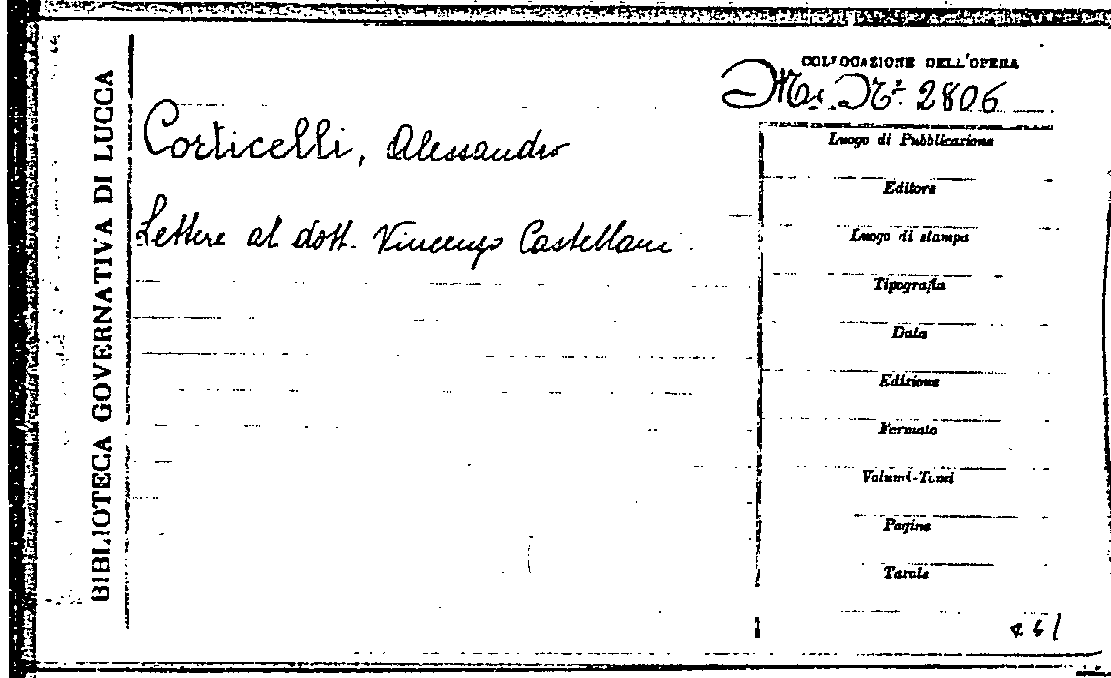 BIBLIOTECA GOVERNATIVA DI LUCCA
COLLOCAZIONE DELL'OPERA
Ms. N.º 2806
Corticelli, Alessandro
Lettere al dott. Vincenzo Castellani
Luogo di Pubblicazione
Editore
Luogo di stampa
Tipografia
Data
Edizione
Formato
Volumi-Tomi
Pagine
Tavole